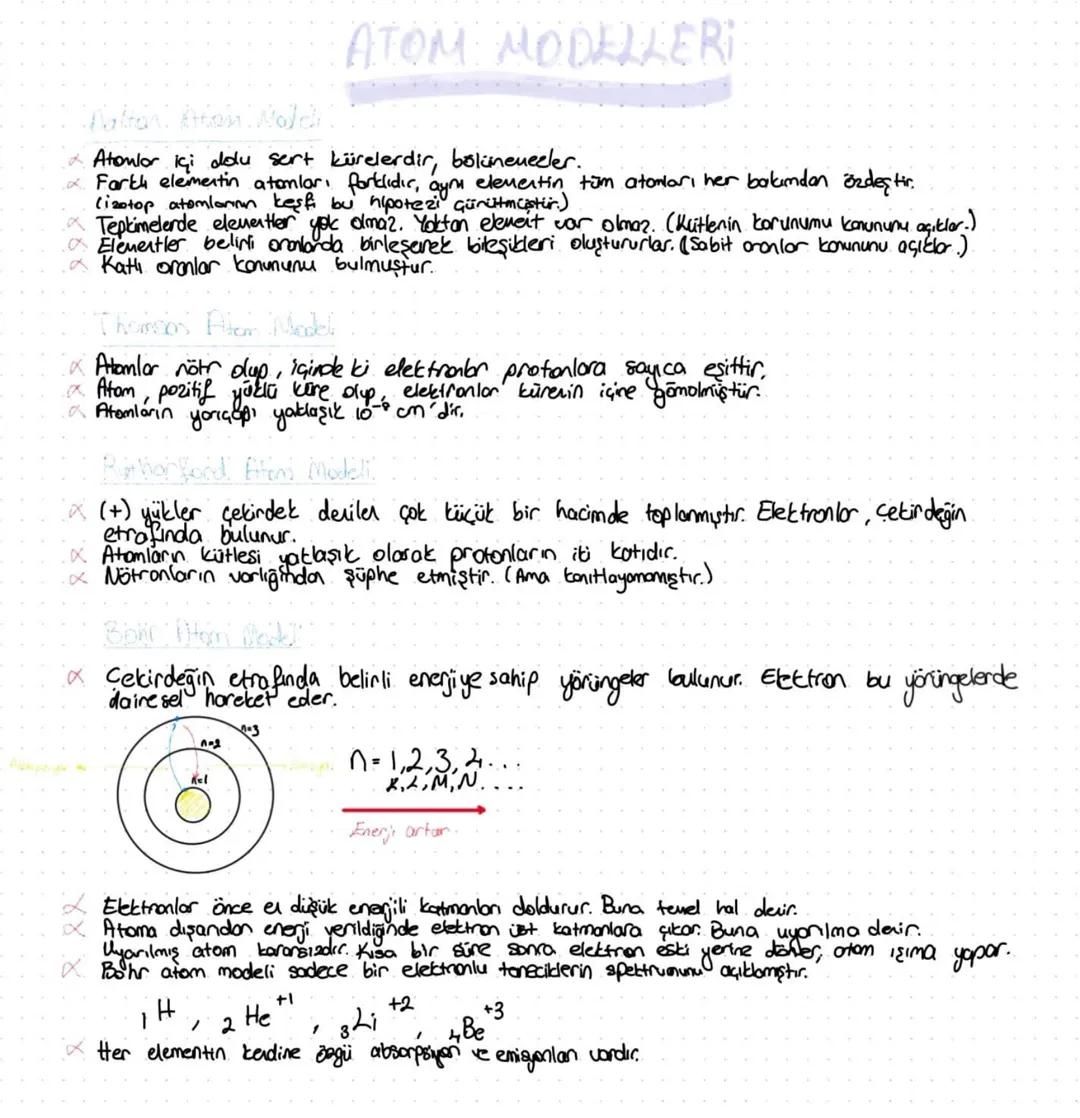 ATOM MODELLERİ
Dalton Atom Modeli
Atomlar içi dolu sert kürelerdir, bölünemezler.
Farklı elementin atomları farklıdır, aynı elementin tüm atomları her bakımdan özdeştir.
(İzotop atomlarının keşfi bu hipotezi çürütmüştür.)
Tepkimelerde elementler yok olmaz. Yoktan element var olmaz. (Kütlenin korunumu kanununu açıklar.)
Elementler belirli oranlarda birleşerek bileşikleri oluştururlar. (Sabit oranlar kanununu açıklar.)
Katlı oranlar kanununu bulmuştur.
Thomson Atom Modeli
Atomlar nötr olup, içinde ki elektronlar protonlara sayıca eşittir.
Atom, pozitif yüklü küre olup, elektronlar kürenin içine gömülmüştür.
Atomların yarıçapı yaklaşık 10⁻⁸ cm'dir.
Rutherford Atom Modeli
(+) yükler çekirdek denilen çok küçük bir hacimde toplanmıştır. Elektronlar, çekirdeğin
etrafında bulunur.
Atomların kütlesi yaklaşık olarak protonların iki katıdır.
Nötronların varlığından şüphe etmiştir. (Ama kanıtlayamamıştır.)
Bohr Atom Modeli
Çekirdeğin etrafında belirli enerjiye sahip yörüngeler bulunur. Elektron bu yörüngelerde
dairesel hareket eder.
n=3
n=2
n=1
n = 1,2,3,4...
K,L,M,N....
Enerji artar
Elektronlar önce en düşük enerjili katmanları doldurur. Buna temel hal denir.
Atoma dışarıdan enerji verildiğinde elektron üst katmanlara çıkar. Buna uyarılma denir.
Uyarılmış atom kararsızdır. Kısa bir süre sonra elektron eski yerine döner, atom ışıma yapar.
Bohr atom modeli sadece bir elektronlu taneciklerin spektrumunu açıklamıştır.
₁H, ₂He⁺¹, ₃Li⁺², ₄Be⁺³
Her elementin kendine özgü absorpsiyon ve emisyonları vardır.